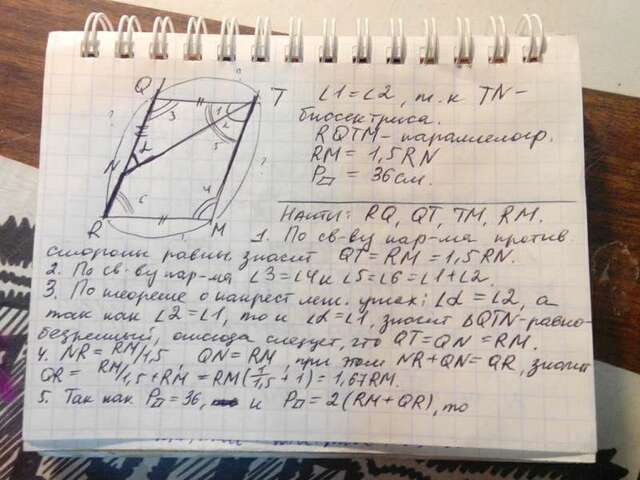 ∠1=∠2, т.к TN-
биссектриса.
RQTM - параллелогр.
RM = 1,5RN
P▱ = 36см.
Найти: RQ, QT, TM, RM.
1. По св-ву пар-ма против.
стороны равны. значит QT = RM = 1,5RN.
2. По св-ву пар-ма ∠3=∠4 и ∠5=∠6=∠1+∠2.
3. По теореме о накрест леж. углах: ∠α=∠2, а
так как ∠2=∠1, то и ∠α=∠1, значит ΔQTN-равно-
бедренный, отсюда следует, что QT=QN=RM.
4. NR = RM/1,5 QN=RM, при этом NR+QN=QR, значит
QR = RM/1,5 + RM = RM(1/1,5 + 1) = 1,67RM.
5. Так как P▱=36, и P▱=2(RM+QR), то
Q
T
N
R
M
1
2
3
4
5
6
α
?
?